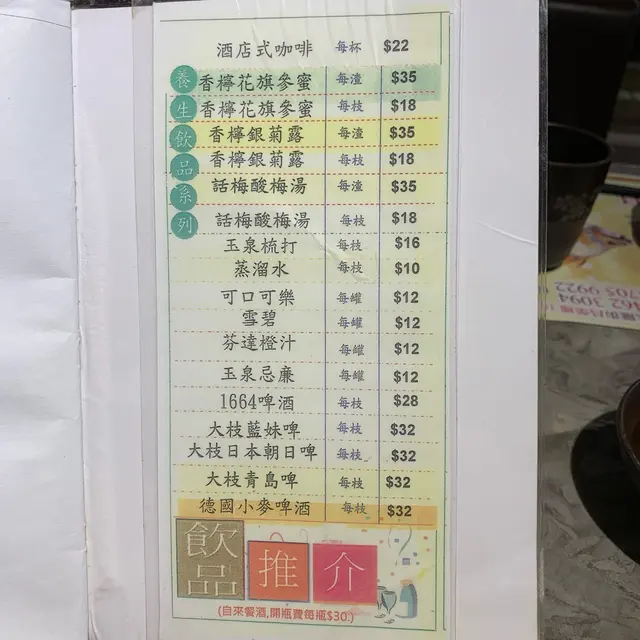 酒店式咖啡 每杯 $22
養生飲品系列
香檸花旗參蜜 每渣 $35
香檸花旗參蜜 每枝 $18
香檸銀菊露 每渣 $35
香檸銀菊露 每枝 $18
話梅酸梅湯 每渣 $35
話梅酸梅湯 每枝 $18
玉泉梳打 每枝 $16
蒸溜水 每枝 $10
可口可樂 每罐 $12
雪碧 每罐 $12
芬達橙汁 每罐 $12
玉泉忌廉 每罐 $12
1664啤酒 每枝 $28
大枝藍妹啤 每枝 $32
大枝日本朝日啤 每枝 $32
大枝青島啤 每枝 $32
德國小麥啤酒 每枝 $32
飲品推介
(自來餐酒,開瓶費每瓶$30.)
462 3094
705 9922